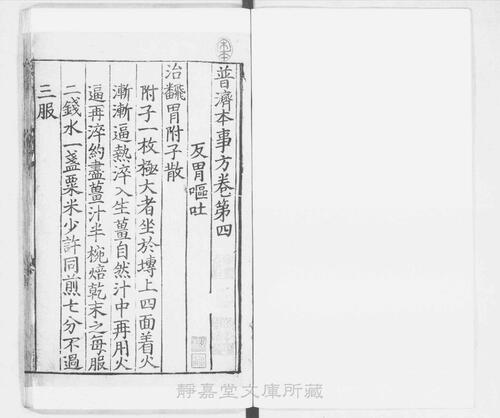 普濟本事方卷第四
反胃嘔吐
治飜胃附子散
附子一枚極大者坐於塼上四面着火
漸漸逼熱淬入生薑自然汁中再用火
逼再淬約盡薑汁半椀焙乾末之每服
二錢水一盞粟米少許同煎七分不過
三服
靜嘉堂文庫所藏